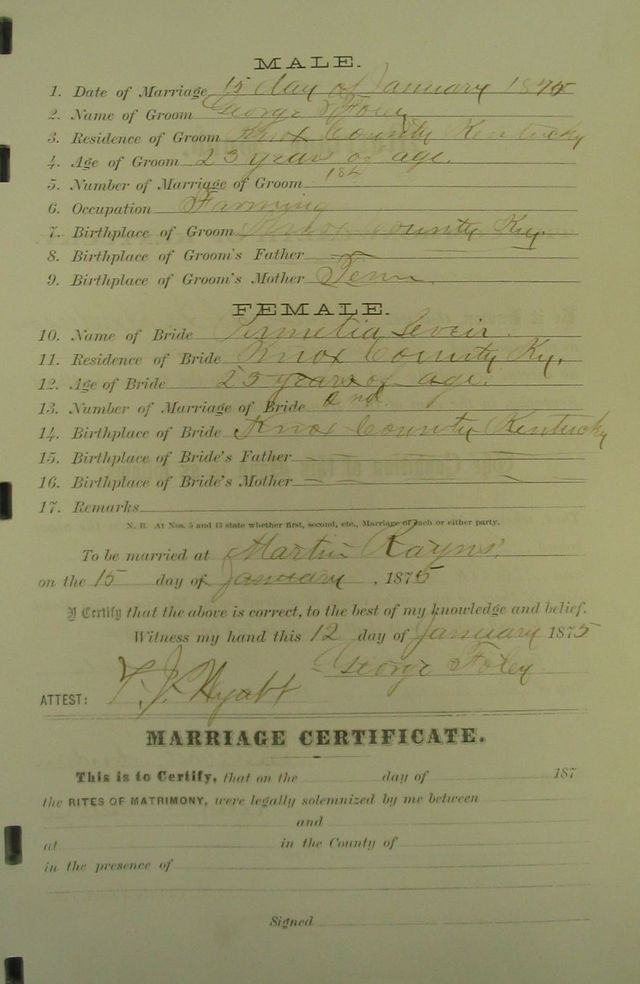 MALE.
1. Date of Marriage 15 day of January 1875
2. Name of Groom George Foley
3. Residence of Groom Knox County Kentucky
4. Age of Groom 23 years of age.
5. Number of Marriage of Groom 1st
6. Occupation Farming
7. Birthplace of Groom Knox County Ky.
8. Birthplace of Groom's Father
9. Birthplace of Groom's Mother Tenn.
FEMALE.
10. Name of Bride
11. Residence of Bride Knox County Ky.
12. Age of Bride 23 years of age.
13. Number of Marriage of Bride 2nd.
14. Birthplace of Bride Knox County Kentucky
15. Birthplace of Bride's Father
16. Birthplace of Bride's Mother
17. Remarks
N. B. At Nos. 5 and 13 state whether first, second, etc., Marriage of each or either party.
To be married at Martin
on the 15 day of January, 1875
I Certify that the above is correct, to the best of my knowledge and belief.
Witness my hand this 12 day of January 1875
George Foley
ATTEST: T. J. Wyatt
MARRIAGE CERTIFICATE.
This is to Certify, that on the day of 187
the RITES OF MATRIMONY, were legally solemnized by me between
and
at in the County of
in the presence of
Signed